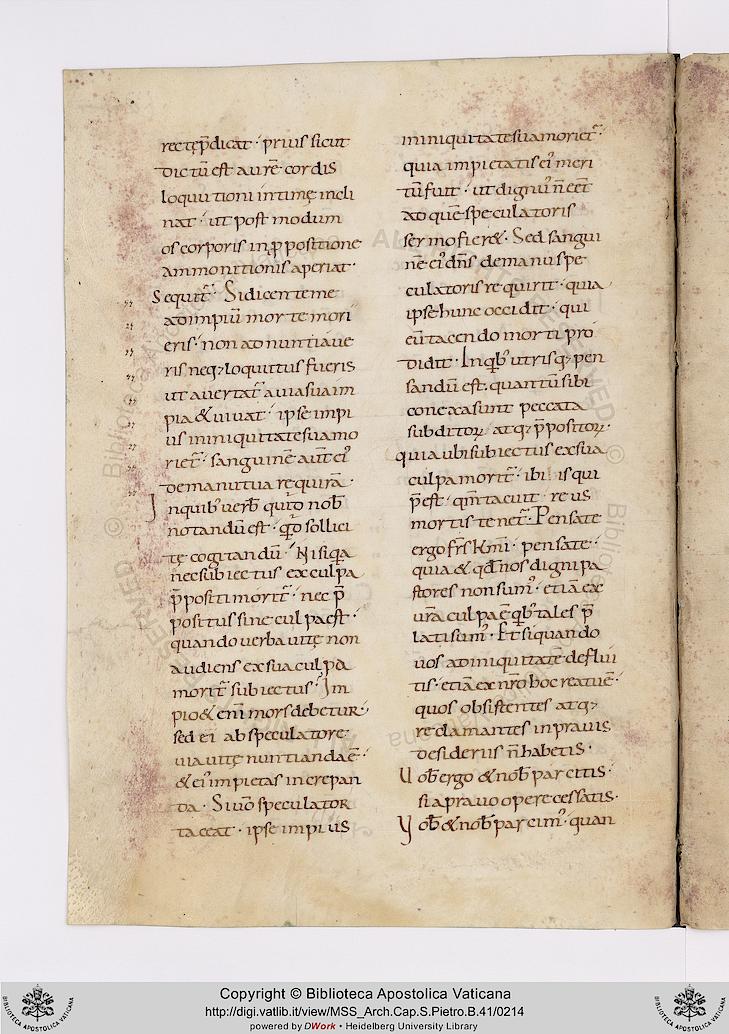 rectę p̄dicat̄ · prius sicut
dictū est aurē cordis
locutioni intimę incli
nat · ut postmodum
os corporis in p̱positione
ammonitionis aperiat ·
Sequit̄ · Si dicente me
ad impiū morte mori
eris · non adnuntiaue
ris neq; locutus fueris
ut auertat̄ a uia sua im
pia & uiuat · ipse impi
us in iniquitate sua mo
riet̄ · sanguinē aut̄ ei᾽
de manu tua requirā ·
In quib᾽ uerb̄ quid nob̄
notandū est · qd̄ sollici
tę cogitandū · Nisi q̄a
nec subiectus ex culpa
p̄positi morit̄ · nec p̄
positus sine culpa est ·
quando uerba uitę non
audiens ex sua culpa
morit̄ subiectus · Im
pio & eni mors debetur ·
sed ei ab speculatore
uia uitę nuntianda ē ·
& ei᾽ impietas increpan
da · Si ū speculator
taceat · ipse impius
in iniquitate sua moriet̄ ·
quia impietatis ei᾽ meri
tū fuit · ut dignū n̄ eēt
ad quē speculatoris
sermo fier& · Sed sangui
nē ei᾽ dn̄s de manu spe
culatoris requirit · quia
ipse hunc occidit · qui
eū tacendo morti pro
didit · In qb᾽ utrisq; pen
sandū est · quantū sibi
conexa sunt peccata
subditoꝝ atq; p̄positoꝝ ·
quia ubi subiectus ex sua
culpa morit̄ · ibi is qui
p̄est · qm̄ tacuit · reus
mortis tenet̄ · Pensate
ergo fr̄s kmi · pensate ·
quia & qd̄ nos digni pa
stores non sum᾽ · etiā ex
ur̄a culpa ē qb᾽ tales p̄
lati sum᾽ · Et si quando
uos ad iniquitatē deflui
tis · etiā ex nr̄o hoc reatu ē ·
quos obsistentes atq;
reclamantes in prauis
desideriis n̄ habetis ·
Uob̄ ergo & nob̄ parcitis ·
si a prauo opere cessatis ·
Uob̄ & nob̄ parcim᾽ · quan
Copyright © Biblioteca Apostolica Vaticana
http://digi.vatlib.it/view/MSS_Arch.Cap.S.Pietro.B.41/0214
powered by DWork • Heidelberg University Library